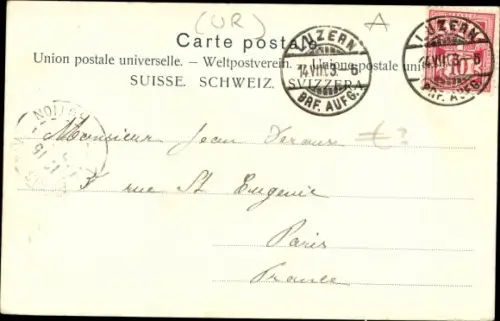 (UR)
Carte postale.
Union postale universelle. — Weltpostverein. — Unione postale universale
SUISSE. SCHWEIZ. SVIZZERA.
LUZERN
14.VII.3. 6
BRF. AUFG.
LUZERN
14.VII.3. 6
BRF. AUFG.
10
Monsieur Jean
3 rue St Eugenie
Paris
France